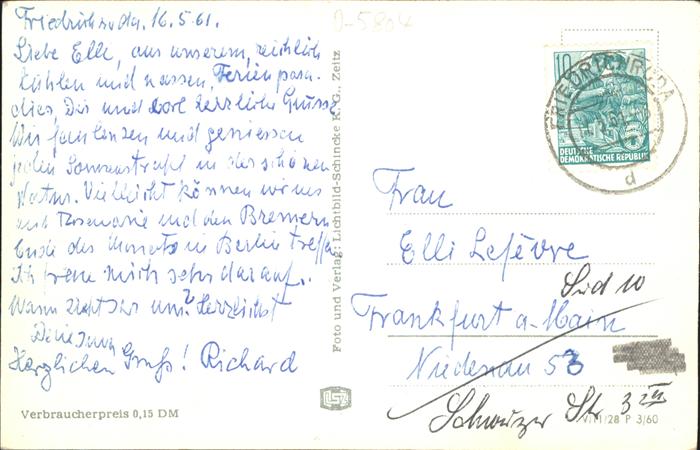 Friedrichroda, 16.5.61.
Liebe Elli, aus unserem, reichlich
kühlen und nassen, Ferienpara-
dies, Dir und herzliche Grüsse
Wir faulenzen und geniessen
jeden Sonnenstrahl in der schönen
Natur. Vielleicht können wir uns
mit Rosemarie und den Bremern
Ende des Monats in Berlin treffen
Ich freue mich sehr darauf.
Wann seht Ihr uns? Herzlichst
Deine
Herzlichen Gruß! Richard
Verbraucherpreis 0,15 DM
Foto und Verlag: Lichtbild-Schincke K. G., Zeitz
10
DEUTSCHE
DEMOKRATISCHE REPUBLIK
FRIEDRICHRODA
d
Frau
Elli Lefèvre
Süd 10
Frankfurt a-Main
Niedenau 53
Schweizer Str. 3 III
V/11/28 P 3/60